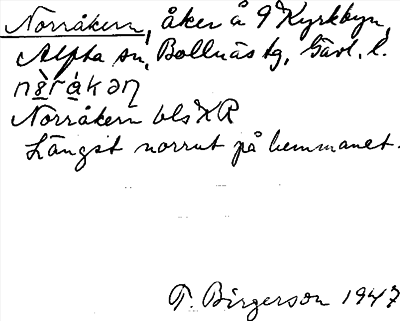 Norråkern, åker å 9 Kyrkbyn,
Alfta sn, Bollnäs tg, Gävl. l.
Norråkern bls XR
Längst norrut på hemmanet.
T. Birgerson 1947